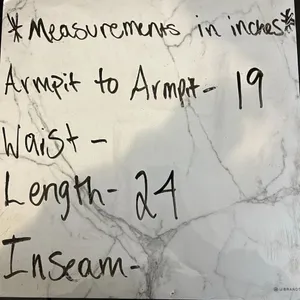 * Measurements in inches *
Armpit to Armpit- 19
Waist -
Length- 24
Inseam-